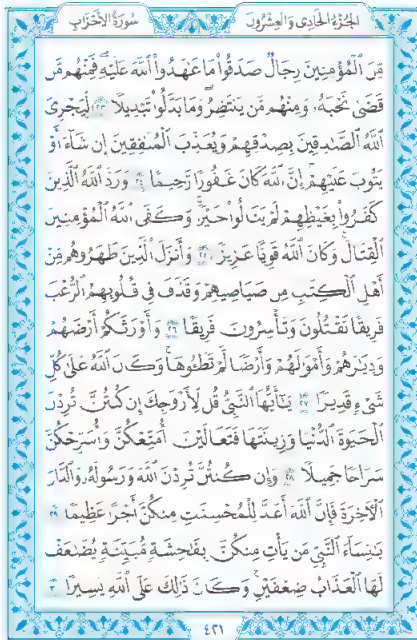 الجزء الحادي والعشرون سورة الأحزاب
مِّنَ ٱلْمُؤْمِنِينَ رِجَالٌ صَدَقُوا۟ مَا عَٰهَدُوا۟ ٱللَّهَ عَلَيْهِ ۖ فَمِنْهُم مَّن
قَضَىٰ نَحْبَهُۥ وَمِنْهُم مَّن يَنتَظِرُ ۖ وَمَا بَدَّلُوا۟ تَبْدِيلًا ٢٣ لِّيَجْزِىَ
ٱللَّهُ ٱلصَّٰدِقِينَ بِصِدْقِهِمْ وَيُعَذِّبَ ٱلْمُنَٰفِقِينَ إِن شَآءَ أَوْ
يَتُوبَ عَلَيْهِمْ ۚ إِنَّ ٱللَّهَ كَانَ غَفُورًا رَّحِيمًا ٢٤ وَرَدَّ ٱللَّهُ ٱلَّذِينَ
كَفَرُوا۟ بِغَيْظِهِمْ لَمْ يَنَالُوا۟ خَيْرًا ۚ وَكَفَى ٱللَّهُ ٱلْمُؤْمِنِينَ
ٱلْقِتَالَ ۚ وَكَانَ ٱللَّهُ قَوِيًّا عَزِيزًا ٢٥ وَأَنزَلَ ٱلَّذِينَ ظَٰهَرُوهُم مِّنْ
أَهْلِ ٱلْكِتَٰبِ مِن صَيَاصِيهِمْ وَقَذَفَ فِى قُلُوبِهِمُ ٱلرُّعْبَ
فَرِيقًا تَقْتُلُونَ وَتَأْسِرُونَ فَرِيقًا ٢٦ وَأَوْرَثَكُمْ أَرْضَهُمْ
وَدِيَٰرَهُمْ وَأَمْوَٰلَهُمْ وَأَرْضًا لَّمْ تَطَـُٔوهَا ۚ وَكَانَ ٱللَّهُ عَلَىٰ كُلِّ
شَىْءٍ قَدِيرًا ٢٧ يَٰٓأَيُّهَا ٱلنَّبِىُّ قُل لِّأَزْوَٰجِكَ إِن كُنتُنَّ تُرِدْنَ
ٱلْحَيَوٰةَ ٱلدُّنْيَا وَزِينَتَهَا فَتَعَالَيْنَ أُمَتِّعْكُنَّ وَأُسَرِّحْكُنَّ
سَرَاحًا جَمِيلًا ٢٨ وَإِن كُنتُنَّ تُرِدْنَ ٱللَّهَ وَرَسُولَهُۥ وَٱلدَّارَ
ٱلْءَاخِرَةَ فَإِنَّ ٱللَّهَ أَعَدَّ لِلْمُحْسِنَٰتِ مِنكُنَّ أَجْرًا عَظِيمًا ٢٩
يَٰنِسَآءَ ٱلنَّبِىِّ مَن يَأْتِ مِنكُنَّ بِفَٰحِشَةٍ مُّبَيِّنَةٍ يُضَٰعَفْ
لَهَا ٱلْعَذَابُ ضِعْفَيْنِ ۚ وَكَانَ ذَٰلِكَ عَلَى ٱللَّهِ يَسِيرًا ٣٠
٤٢١